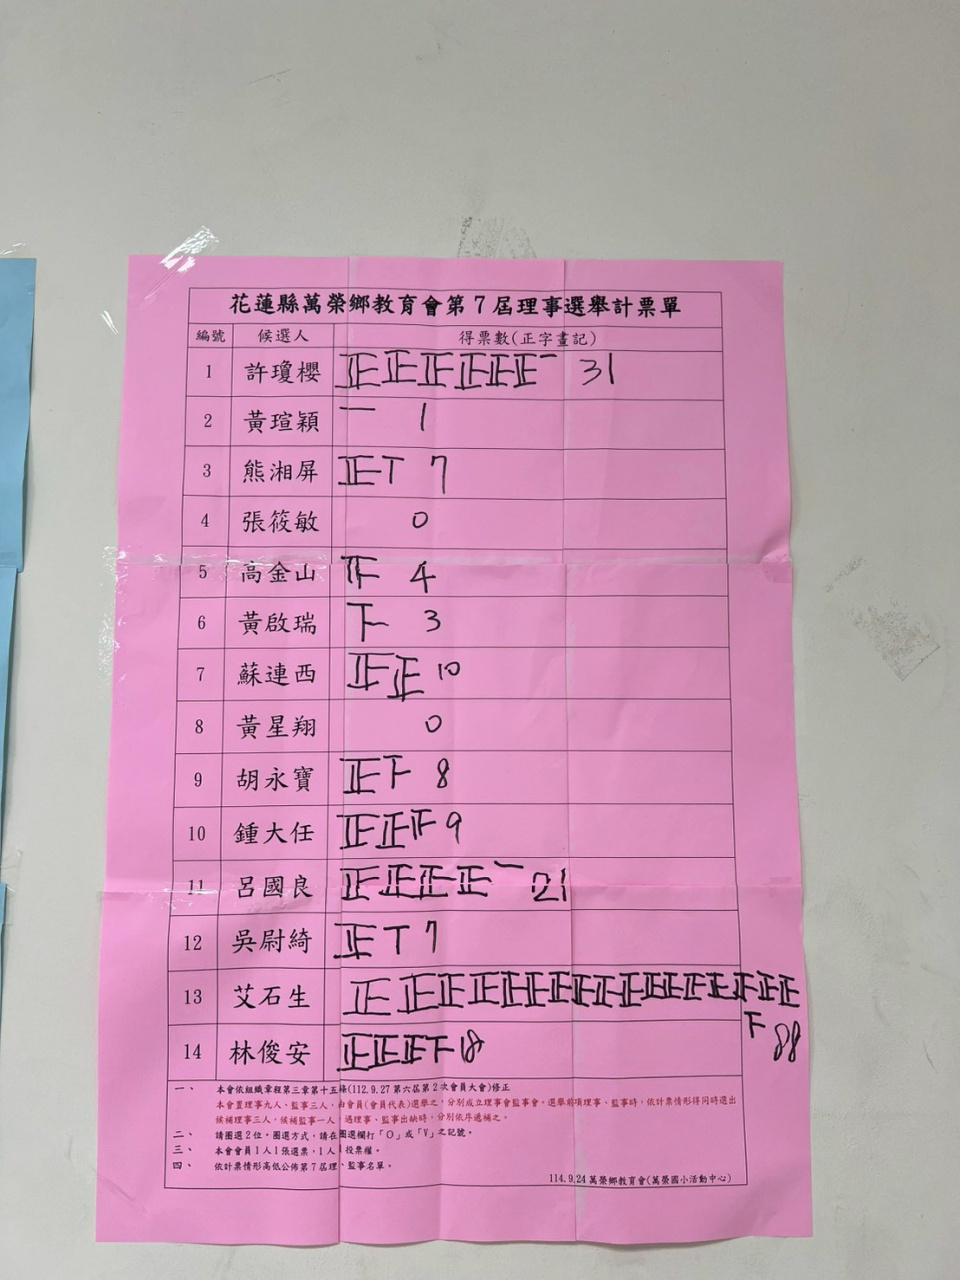 花蓮縣萬榮鄉教育會第7屆理事選舉計票單
編號 候選人 得票數(正字畫記)
1 許瓊櫻 正正正正正正一 31
2 黃瑄穎 一 1
3 熊湘屏 正T 7
4 張筱敏 0
5 高金山 4
6 黃啟瑞 下 3
7 蘇連西 正正 10
8 黃星翔 0
9 胡永寶 正下 8
10 鍾大任 正正 9
11 呂國良 正正正正一 21
12 吳尉綺 正T 7
13 艾石生 正正正正正正正正正正正正正正正正正
下 88
14 林俊安 正正正下 18
一、 本會依組織章程第三章第十五條(112.9.27 第六屆第2次會員大會)修正
本會置理事九人、監事三人,由會員(會員代表)選舉之,分別成立理事會監事會。選舉前項理事、監事時,依計票情形得同時選出
候補理事三人,候補監事一人,遇理事、監事出缺時,分別依序遞補之。
二、 請圈選2位。圈選方式,請在圈選欄打「O」或「V」之記號。
三、 本會會員1人1張選票,1人1投票權。
四、 依計票情形高低公佈第7屆理、監事名單。
114.9.24 萬榮鄉教育會(萬榮國小活動中心)